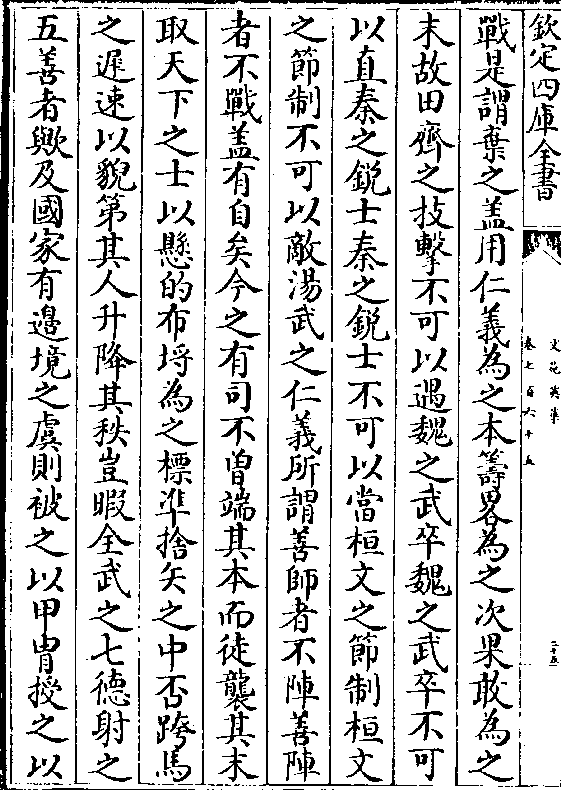 欽定四庫全書
文苑英華
卷七百六十五
二十五
戰是謂棄之盖用仁義為之本籌畧為之次果敢為之
末故田齊之技擊不可以遇魏之武卒魏之武卒不可
以直秦之鋭士秦之鋭士不可以當桓文之節制桓文
之節制不可以敵湯武之仁義所謂善師者不陣善陣
者不戰盖有自矣今之有司不曽端其本而徒襲其末
取天下之士以懸的布埒為之標準捨矢之中否跨馬
之遲速以貌第其人升降其秩豈暇全武之七德射之
五善者歟及國家有邉境之虞則被之以甲胄授之以